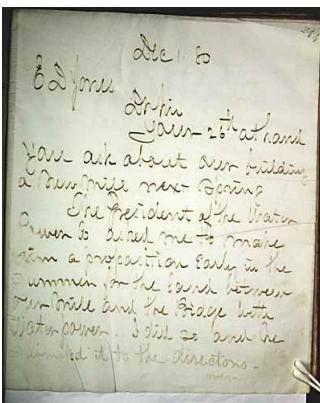 Dec 1. 80
E D Jones
Dr Sir
Your 26th at hand
You ask about our building
a New Mill next Spring
The President of the Water
Power Co asked me to make
him a proposition Early in the
Summer for the land between
our Mill and the Bridge with
Water power. I did so and he
submitted it to the directors.